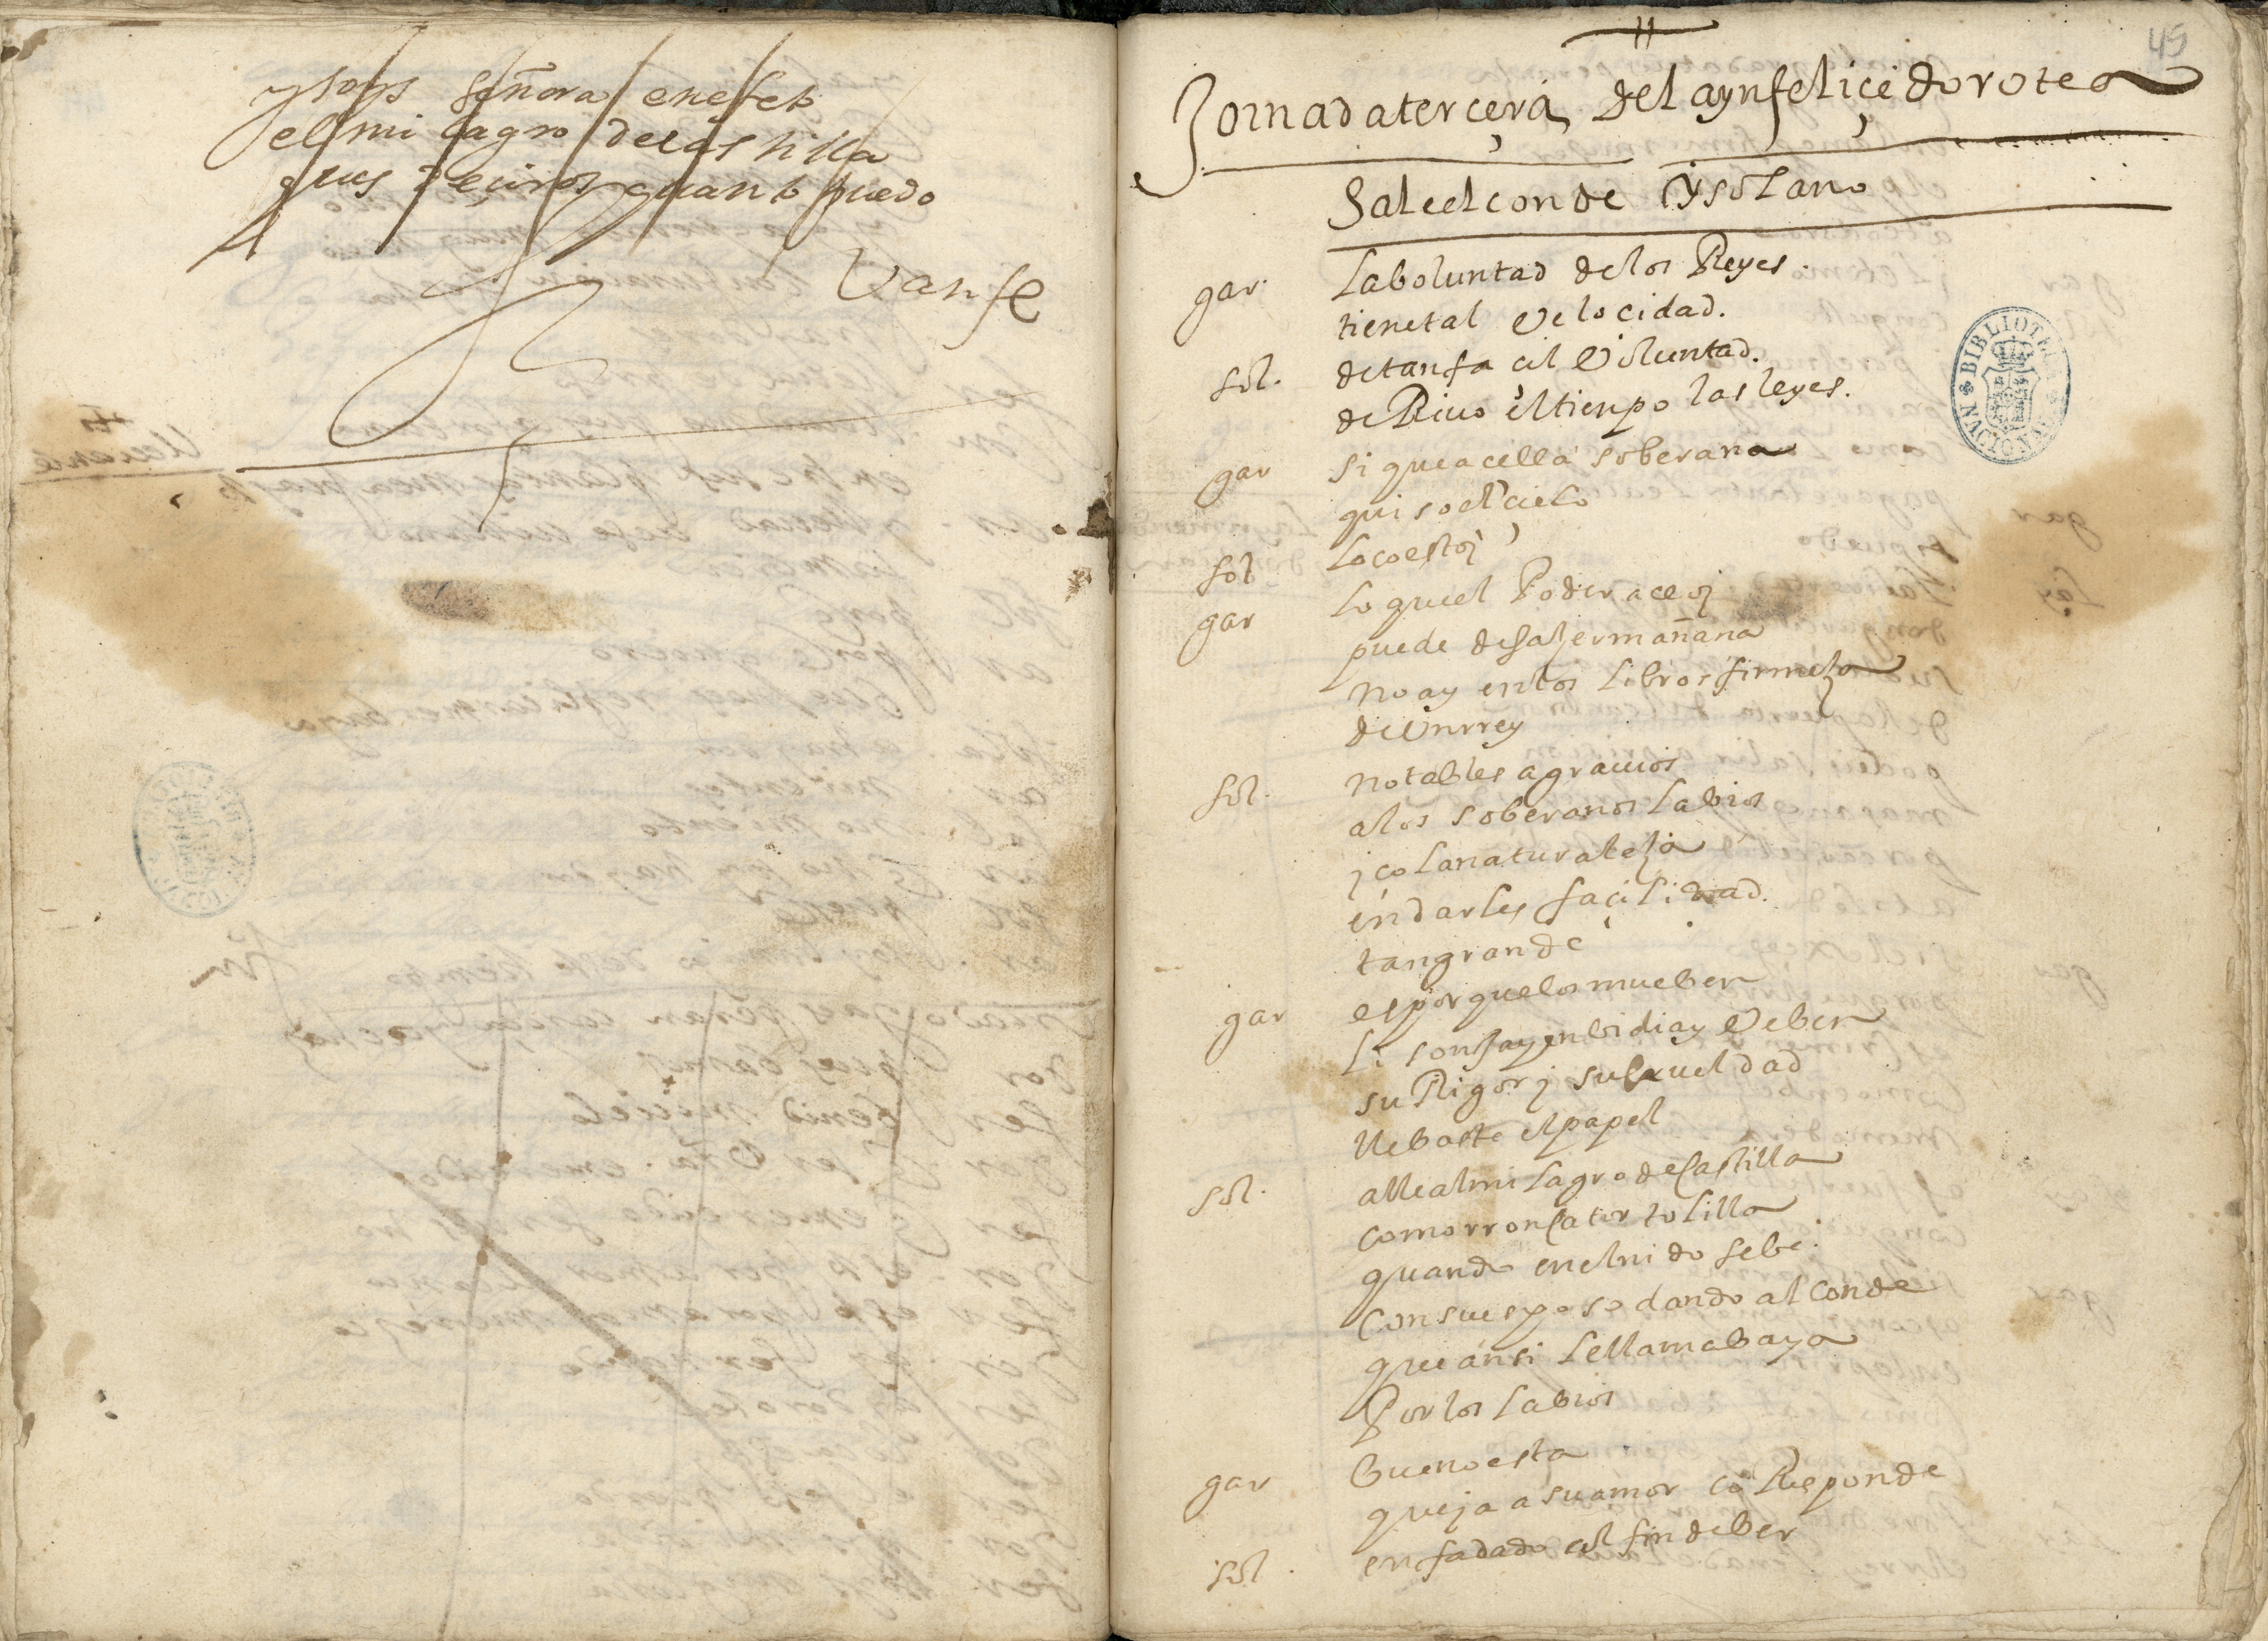 y soys señora en efeto
el milagro de castilla
pues deciros quanto puedo
Vanse
45
Jornada terçera de la ynfeliçe dorotea
Sale el conde y solano
gar. la boluntad de los Reyes.
tiene tal velocidad.
sol. de tan facil voluntad.
deRiuo el tienpo las leyes.
gar si que acella soberana
quiso el cielo
sol loco estoi
gar lo que el Poder ace oi
puede desaçer mañana
no ay en los libros firmeza
de vn rrey
sol. notables agrauios
a los soberanos labios
iço la naturaleza
en darles façilidad.
tan grande
gar es porque los mueben
lisonja y enbidia y beben
su Rigor i su crueldad
llebaste el papel
sol. alle al milagro de Castilla
como rronca tortolilla
quando en el nido se be.
con su esposo dando al conde
que ansi le llamaba ya
Por los labios
gar bueno esta
que ja a su amor coResponde
sol. enfadado al fin de ber
BIBLIOTECA NACIONAL